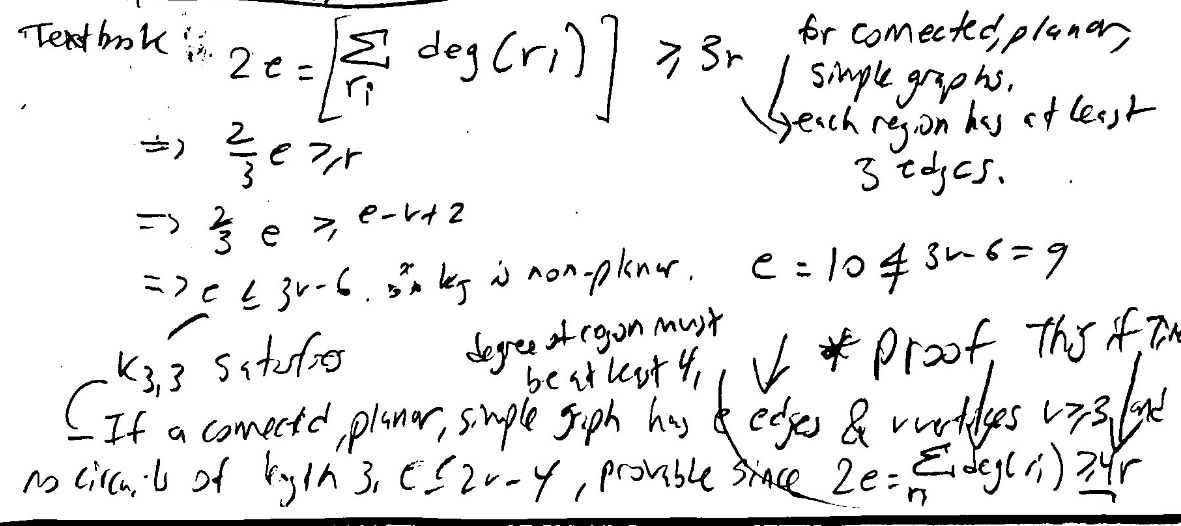 Textbook : 2e = [Σ_{r_i} deg(r_i)] ≥ 3r for connected, planar,
simple graphs.
each region has at least
3 edges.
=> 2/3 e ≥ r
=> 2/3 e ≥ e-v+2
=> e ≤ 3v-6. so k5 is non-planar. e = 10 ≰ 3v-6 = 9
K3,3 satisfies
degree of region must
be at least 4,
* Proof, This if
If a connected, planar, simple graph has e edges & v vertices v≥3, and
no circuits of length 3, e≤2v-4, provable since 2e = Σ_{ri} deg(ri) ≥4r